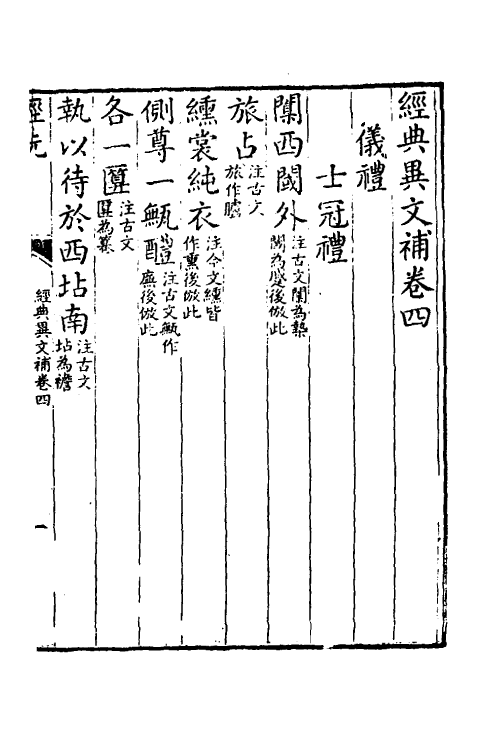 經典異文補卷四
儀禮
士冠禮
闑西閾外注古文闑為槷閾為蹙後倣此
旅占注古文旅作臚
纁裳純衣注今文纁皆作熏後倣此
側尊一甒醴注古文甒作廡後倣此
各一匴注古文匴為篹
執以待於西坫南注古文坫為襜
經典異文補卷四
一